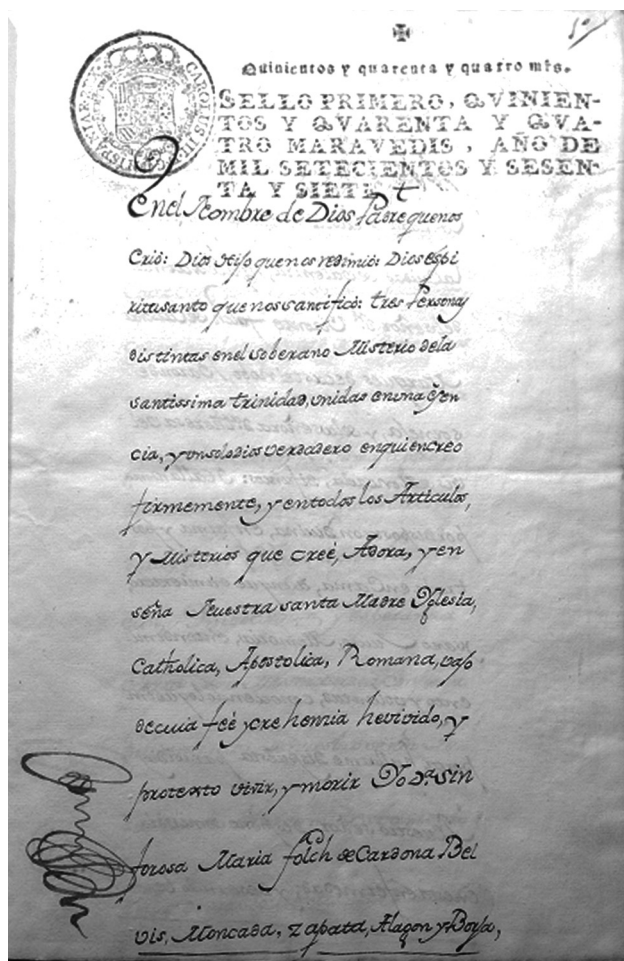 Quinientos y quarenta y quatro mrs.
SELLO PRIMERO, QVINIEN-
TOS Y QVARENTA Y QVA-
TRO MARAVEDIS, AÑO DE
MIL SETECIENTOS Y SESEN-
TA Y SIETE
CAROLUS III HISPANIAR
En el Nombre de Dios Padre que nos
Crió: Dios Hijo que nos redimió: Dios espi
ritu santo que nos santificó: tres Personas
distintas en el soberano Misterio de la
santissima trinidad, unidas en una esen
cia, y un solo dios verdadero en quien creo
firmemente, y en todos los Articulos,
y Misterios que creé, Adora, y en
seña Nuestra santa Madre Yglesia,
Catholica, Apostolica, Romana, vajo
de cuia feé y crehencia he vivido, y
protexto vivir, y morir Yo Dª. Sin
forosa Maria folch de Cardona Bel
vis, Moncada, Zapata, Alagon y Borja,